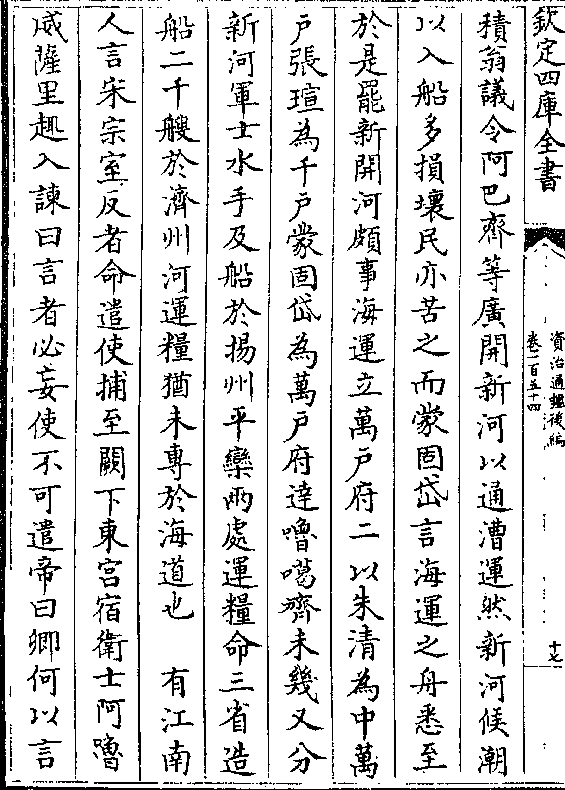 欽定四庫全書
資治通鑑後編
卷一百五十四
十七
積翁議令阿巴齊等廣開新河以通漕運然新河候潮
以入船多損壞民亦苦之而蒙固岱言海運之舟悉至
於是罷新開河頗事海運立萬戸府二以朱清為中萬
戸張瑄為千戸蒙固岱為萬戸府達嚕噶齊未幾又分
新河軍士水手及船於揚州平欒兩處運糧命三省造
船二千艘於濟州河運糧猶未專於海道也　有江南
人言宋宗室反者命遣使捕至闕下東宫宿衛士阿嚕
威薩里趣入諫曰言者必妄使不可遣帝曰卿何以言